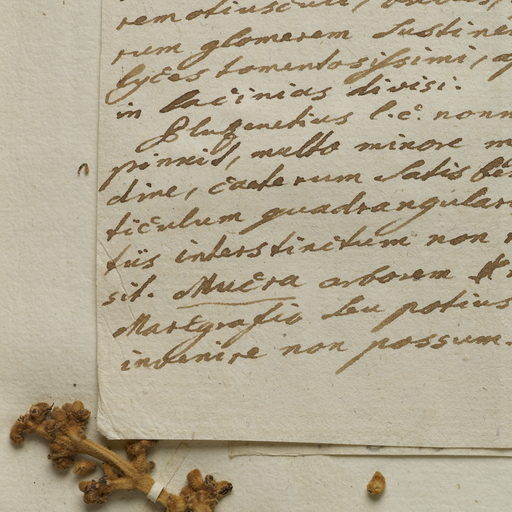 remotiusculi,
rum glomerem sustine
lyces tomentosissimi,
in lacinias divisi.
Plugenetius l.c. nonn
pinnis, multo minore m
dine, cæterum satis
ticulum quadrangular
tiis interstinctum non
sit. Mucra arborem
Marcgrafio seu potius
invenire non possum.